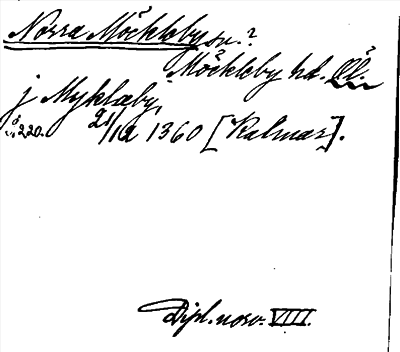 Norra Möckleby sn.?
Möckleby hd. Öl.
j Myklæby,
21/12 1360 [Kalmar].
Dipl. norv. VIII.